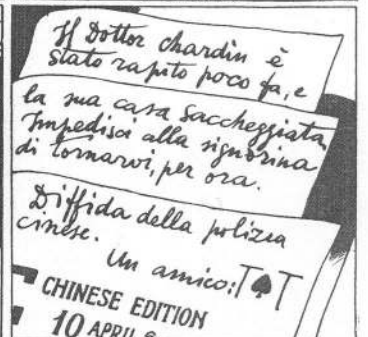 Il Dottor Chardin è
stato rapito poco fa, e
la sua casa saccheggiata.
Impedisci alla signorina
di tornarvi, per ora.
Diffida della polizia
cinese.
Un amico: T♠T
CHINESE EDITION
10 APRIL